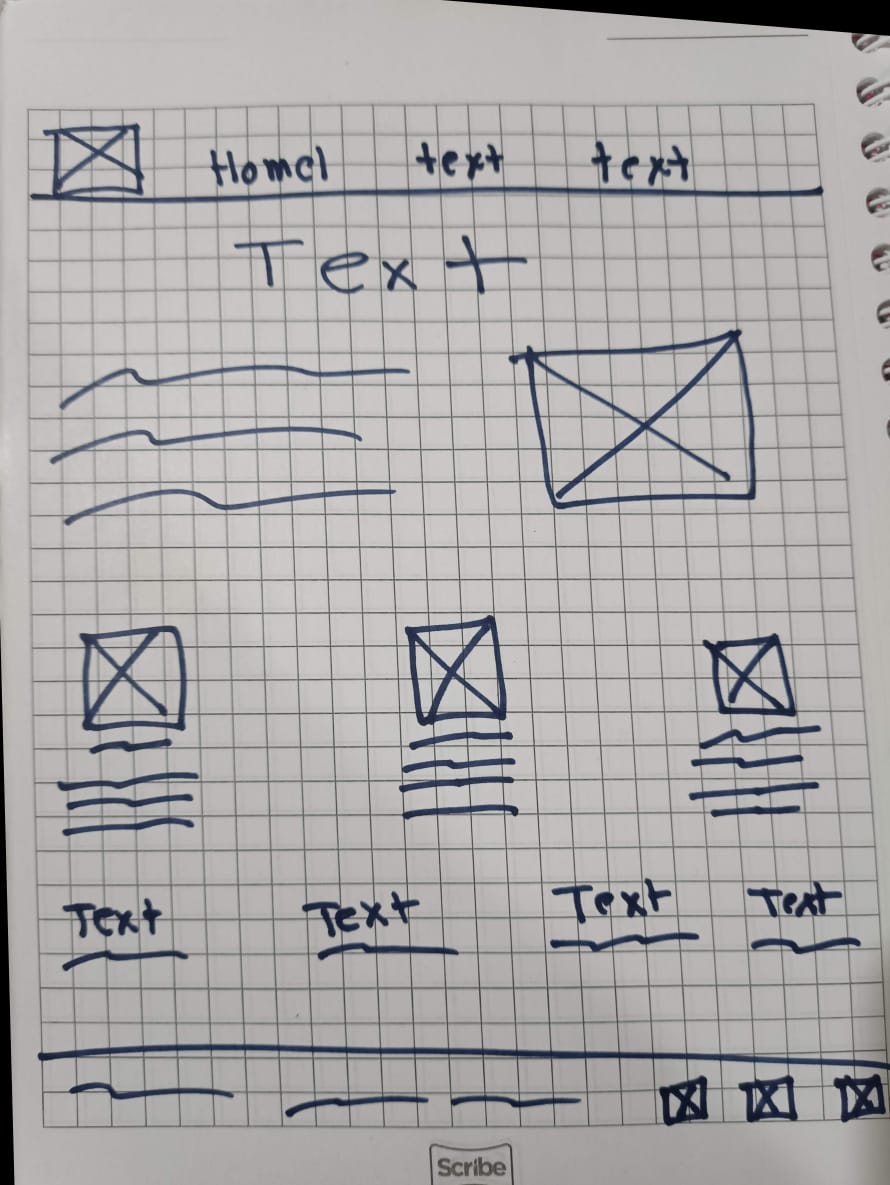 Homel text text
Text
Text Text Text Text
Scribe